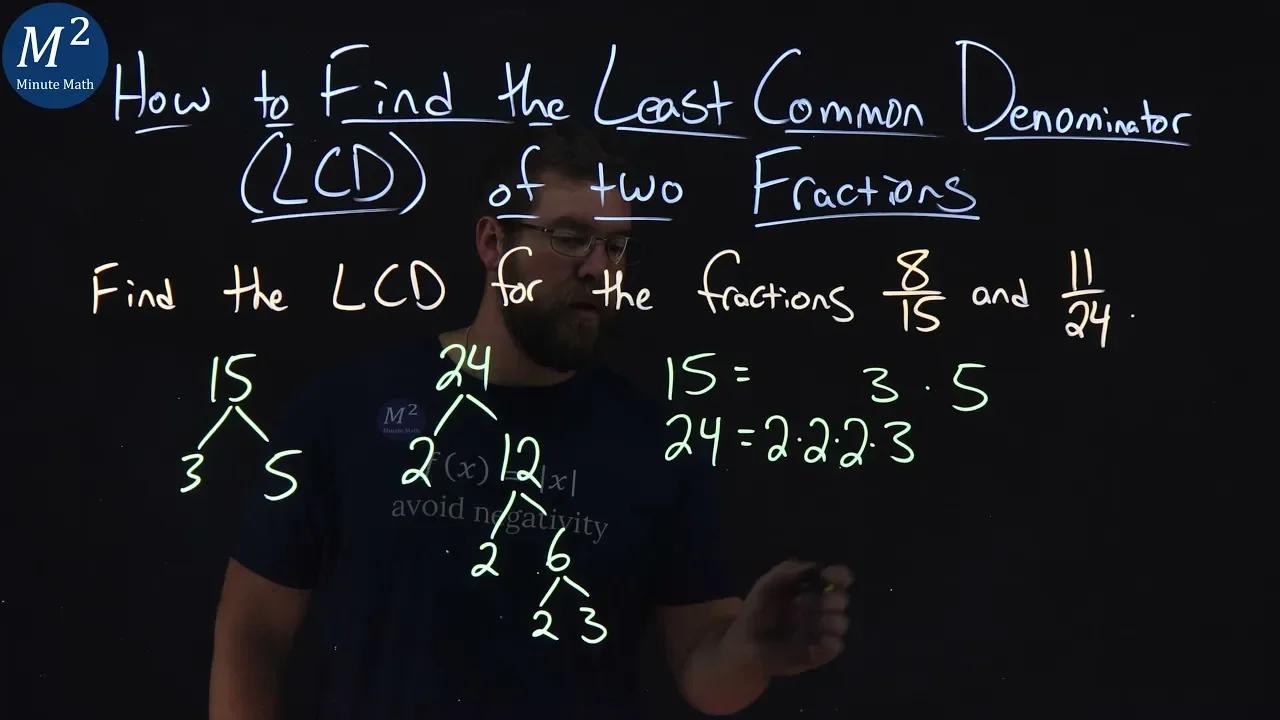 M²
Minute Math
How to Find the Least Common Denominator
(LCD) of two Fractions
Find the LCD for the fractions 8/15 and 11/24.
15
3 5
24
2 12
2 6
2 3
15 = 3 · 5
24 = 2·2·2·3
M²
Minute Math
f(x) = |x|
avoid negativity